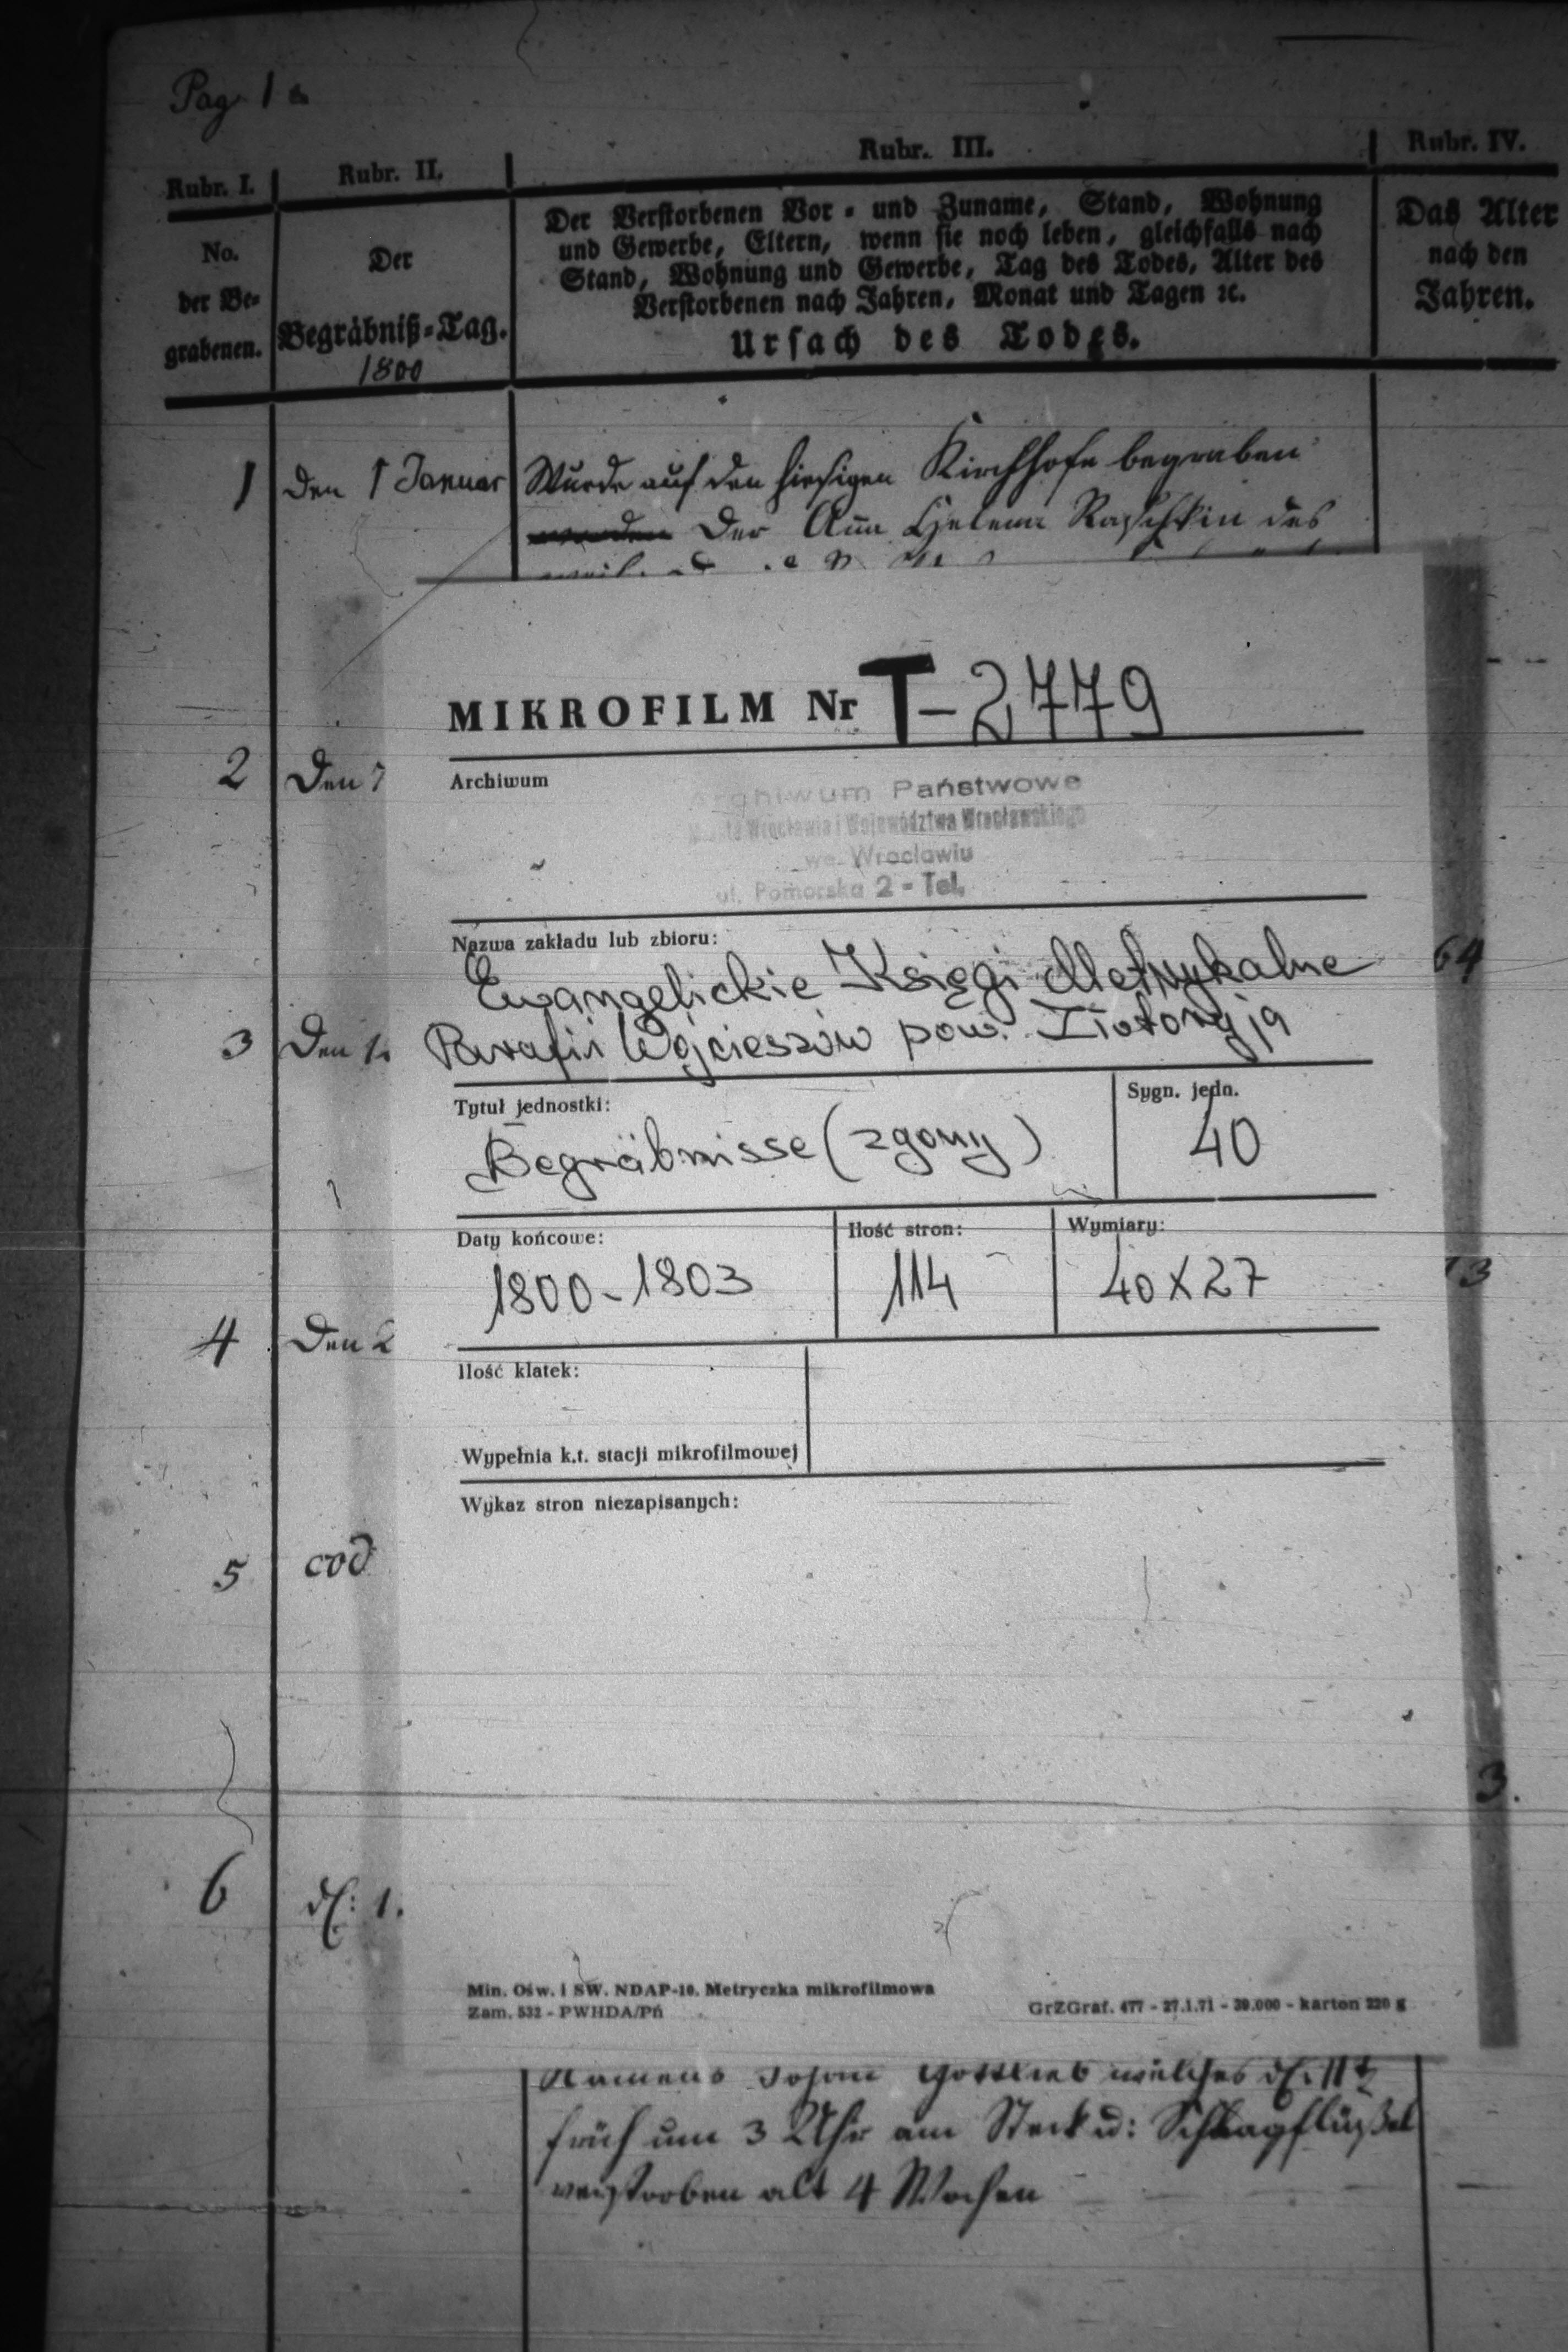 Pag. 1
Rubr. I.
Rubr. II.
Rubr. III.
Rubr. IV.
No.
der Be-
grabenen.
Der
Begräbniß-Tag.
1800
Der Verstorbenen Vor- und Zuname, Stand, Wohnung
und Gewerbe, Eltern, wenn sie noch leben, gleichfalls nach
Stand, Wohnung und Gewerbe, Tag des Todes, Alter des
Verstorbenen nach Jahren, Monat und Tagen ꝛc.
Ursach des Todes.
Das Alter
nach den
Jahren.
1
den 1 Januar
Wurde auf den hiesigen Kirchhofe begraben
der Aña Helena Raschkin des
MIKROFILM Nr T-2779
2
Den 7
Archiwum
Archiwum Państwowe
Miasta Wrocławia i Województwa Wrocławskiego
we Wrocławiu
ul. Pomorska 2 - Tel.
Nazwa zakładu lub zbioru:
Ewangelickie Księgi Metrykalne
64
3
Den 1
Parafii Wojcieszów pow. Złotoryja
Tytuł jednostki:
Begräbnisse (zgony)
Sygn. jedn.
40
Daty końcowe:
1800-1803
Ilość stron:
114
Wymiary:
40X27
3
4
Den 2
Ilość klatek:
Wypełnia k.t. stacji mikrofilmowej
Wykaz stron niezapisanych:
5
eod
3.
6
d: 1.
Min. Ośw. i SW. NDAP-10. Metryczka mikrofilmowa
Zam. 532 - PWHDA/Pń
GrZGraf. 477 - 27.1.71 - 30.000 - karton 220 g
Namens Johann Gottlieb welches
früh um 3 Uhr am Steck u: Schlagflüßel
verstorben alt 4 Wochen